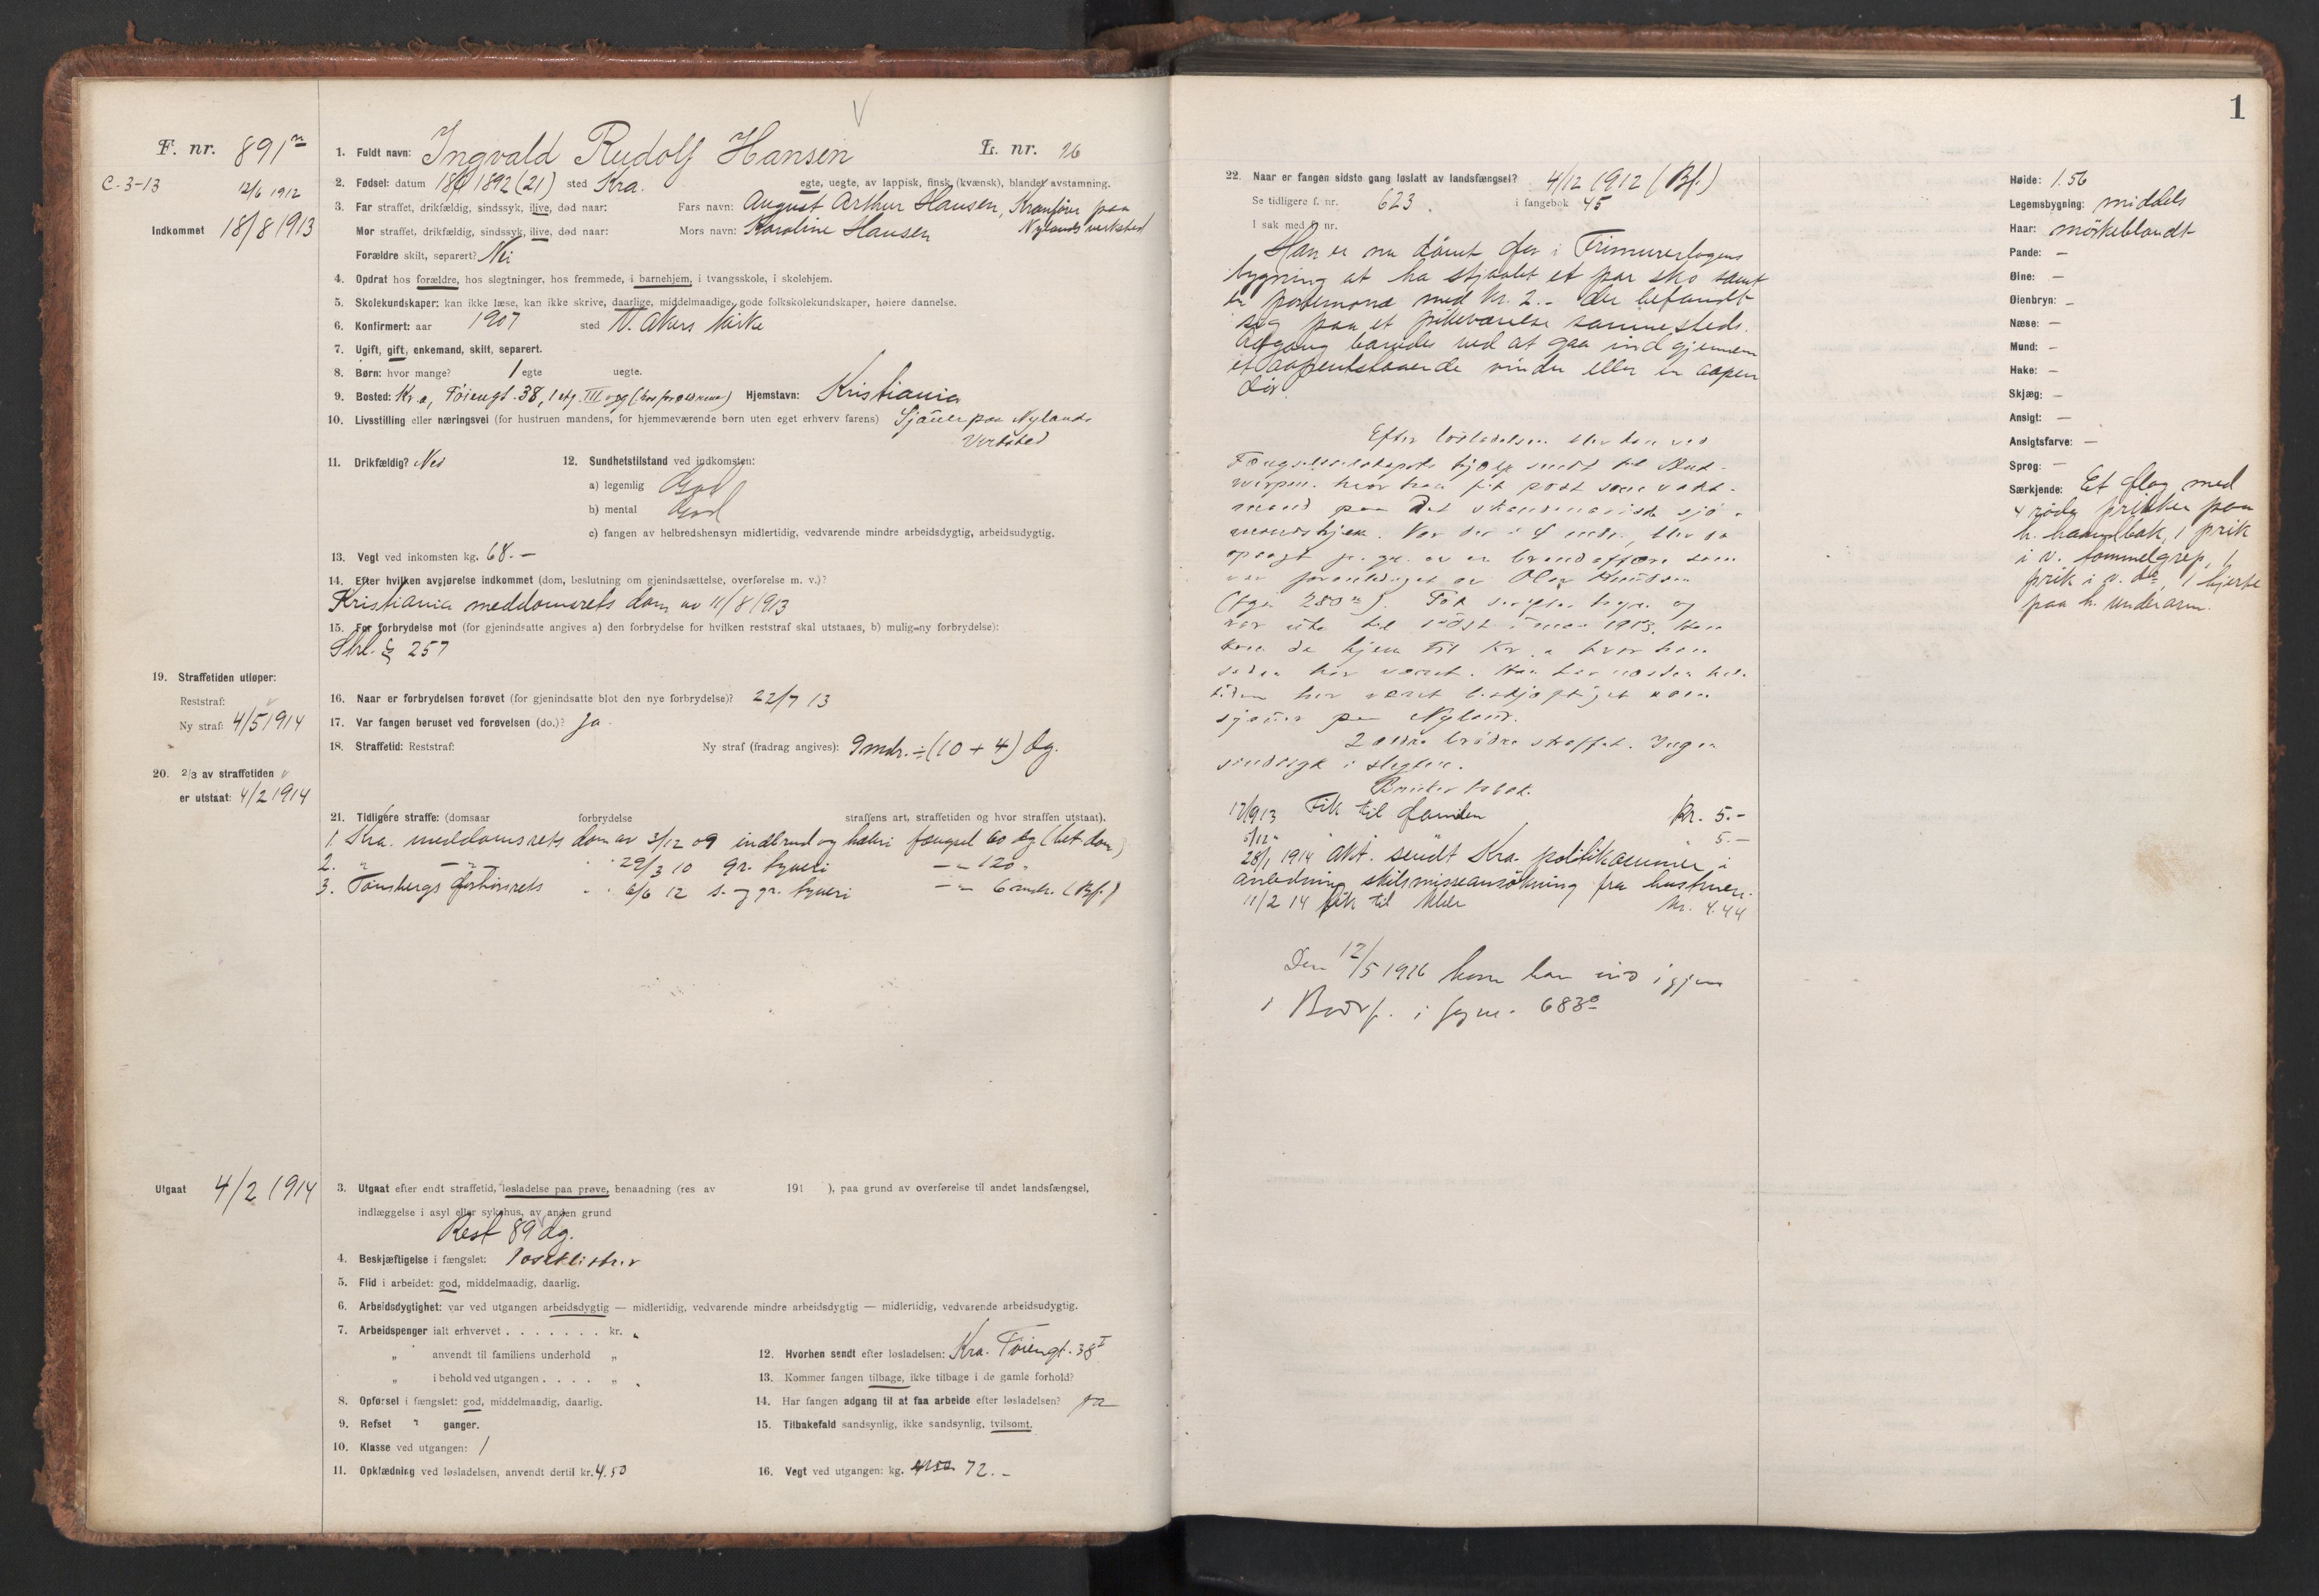 F. nr. 891
C-3-13
12/6 1912
Indkommet 18/8 1913
1. Fuldt navn: Ingvald Rudolf Hansen L. nr. 26
2. Fødsel: datum 18/ 1892 (21) sted Kra. egte, uegte, av lappisk, finsk (kvænsk), blandet avstamning.
3. Far straffet, drikfældig, sindssyk, ilive, død naar: Fars navn: August Arthur Hansen, Kranfører paa
Mor straffet, drikfældig, sindssyk, ilive, død naar: Mors navn: Karoline Hansen Nylands verksted
Forældre skilt, separert? Nei
4. Opdrat hos forældre, hos slegtninger, hos fremmede, i barnehjem, i tvangsskole, i skolehjem.
5. Skolekundskaper: kan ikke læse, kan ikke skrive, daarlige, middelmaadige, gode folkskolekundskaper, høiere dannelse.
6. Konfirmert: aar 1907 sted V. Akers kirke
7. Ugift, gift, enkemand, skilt, separert.
8. Børn: hvor mange? 1 egte uegte.
9. Bosted: Kr.a, Töiengt. 38, 1 etg. III opg (hos forældrene) Hjemstavn: Kristiania
10. Livsstilling eller næringsvei (for hustruen mandens, for hjemmeværende børn uten eget erhverv farens) Sjauer paa Nylands
Verksted
11. Drikfældig? Nei 12. Sundhetstilstand ved indkomsten:
a) legemlig God
b) mental God
c) fangen av helbredshensyn midlertidig, vedvarende mindre arbeidsdygtig, arbeidsudygtig.
13. Vegt ved inkomsten kg. 68.—
14. Efter hvilken avgjørelse indkommet (dom, beslutning om gjenindsættelse, overførelse m. v.)?
Kristiania meddomsrets dom av 11/8 1913
15. For forbrydelse mot (for gjenindsatte angives a) den forbrydelse for hvilken reststraf skal utstaaes, b) mulig ny forbrydelse):
Strl. § 257
19. Straffetiden utløper:
Reststraf:
Ny straf: 4/5 1914
16. Naar er forbrydelsen forøvet (for gjenindsatte blot den nye forbrydelse)? 22/7 13
17. Var fangen beruset ved forøvelsen (do.)? Ja
18. Straffetid: Reststraf: Ny straf (fradrag angives): 9 mdr. ÷ (10 + 4) dg.
20. 2/3 av straffetiden
er utstaat: 4/2 1914
21. Tidligere straffe: (domsaar forbrydelse straffens art, straffetiden og hvor straffen utstaat).
1. Kra. meddomsrets dom av 3/12 09 indbrud og hæleri fængsel 60 dg (bet. dom)
2. " —"— " " 29/3 10 gr. tyveri —"— 120 "
3. Tönsbergs forhörsrets " " 6/6 12 s. og gr. tyveri —"— 6 mdr. (Bf.)
Utgaat 4/2 1914
3. Utgaat efter endt straffetid, løsladelse paa prøve, benaadning (res av 191 ), paa grund av overførelse til andet landsfængsel,
indlæggelse i asyl eller sykehus, av anden grund
Rest 89 dg.
4. Beskjæftigelse i fængslet: Poseklistrer
5. Flid i arbeidet: god, middelmaadig, daarlig.
6. Arbeidsdygtighet: var ved utgangen arbeidsdygtig — midlertidig, vedvarende mindre arbeidsdygtig — midlertidig, vedvarende arbeidsudygtig.
7. Arbeidspenger ialt erhvervet . . . . . . . kr. "
" anvendt til familiens underhold "
" i behold ved utgangen . . . . "
8. Opførsel i fængslet: god, middelmaadig, daarlig.
9. Refset " ganger.
10. Klasse ved utgangen: 1
11. Opklædning ved løsladelsen, anvendt dertil kr. 4.50
12. Hvorhen sendt efter løsladelsen: Kra. Töiengt. 38 I
13. Kommer fangen tilbage, ikke tilbage i de gamle forhold?
14. Har fangen adgang til at faa arbeide efter løsladelsen? ja
15. Tilbakefald sandsynlig, ikke sandsynlig, tvilsomt.
16. Vegt ved utgangen: kg. 72.—
1
22. Naar er fangen sidste gang løslatt av landsfængsel? 4/12 1912 (Bf.)
Se tidligere f. nr. 623 i fangebok 45
I sak med f. nr.
Han er nu dömt for i Frimurerlogens
bygning at ha stjaalet et par sko samt
en portemonæ med kr. 2.- der befandt
sig paa et pikeværelse sammesteds.
Adgang banedes ved at gaa ind gjennem
et aapentstaaende vindu eller en aapen
dör.
Efter lösladelsen blev han ved
Fængselsselskapets hjælp sendt til Ant-
werpen hvor han fik post som vakt-
mand paa det skandinaviske sjö-
mandshjem. Var der i 4 mdr., blev saa
opsagt p. gr. av en brandaffære som
var foranlediget av Olav Knudsen
(fge 280). Tok saa hyre og
var ute til sidst i mai 1913. Han
kom da hjem til Kr.a hvor han
siden har været. Han har næsten hele
tiden her været beskjæftiget som
sjauer paa Nyland.
2 andre brödre straffet. Ingen
sindssyk i slegten.
Bruker tobak.
17/9 13 Fik til familien kr. 5.-
5/12 " " " 5.-
28/1 1914 akt. sendt Kra. politikammer i
anledning skilsmisseansökning fra hustruen.
11/2 14 fik til klær kr. 4.44
Den 12/5 1916 kom han ind igjen
i Bodsf. i fgnr. 683
Høide: 1.56
Legemsbygning: middels
Haar: mörkeblandt
Pande: —
Øine: —
Øienbryn: —
Næse: —
Mund: —
Hake: —
Skjæg: —
Ansigt: —
Ansigtsfarve: —
Sprog: —
Særkjende: Et flag med
4 röde prikker paa
h. haandbak, 1 prik
i v. tommelgrep, 1
prik i v. do, 1 hjerte
paa h. underarm.